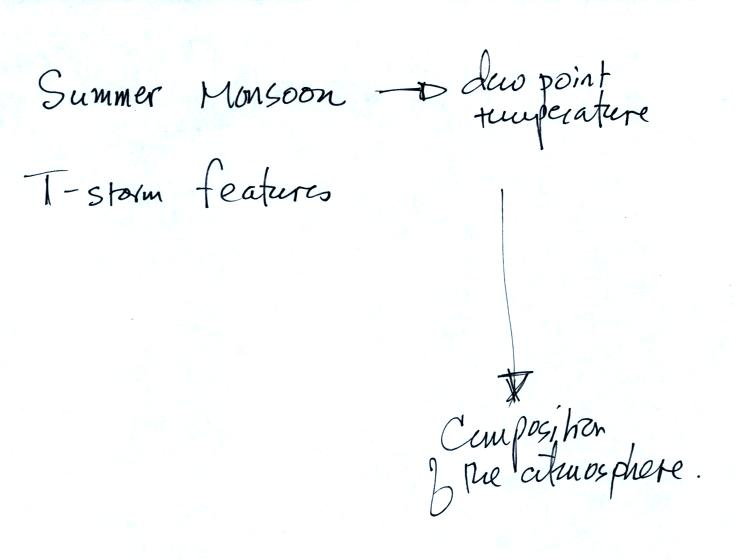 Summer Monsoon → dew point
temperature
T-storm features
Composition
of the atmosphere.